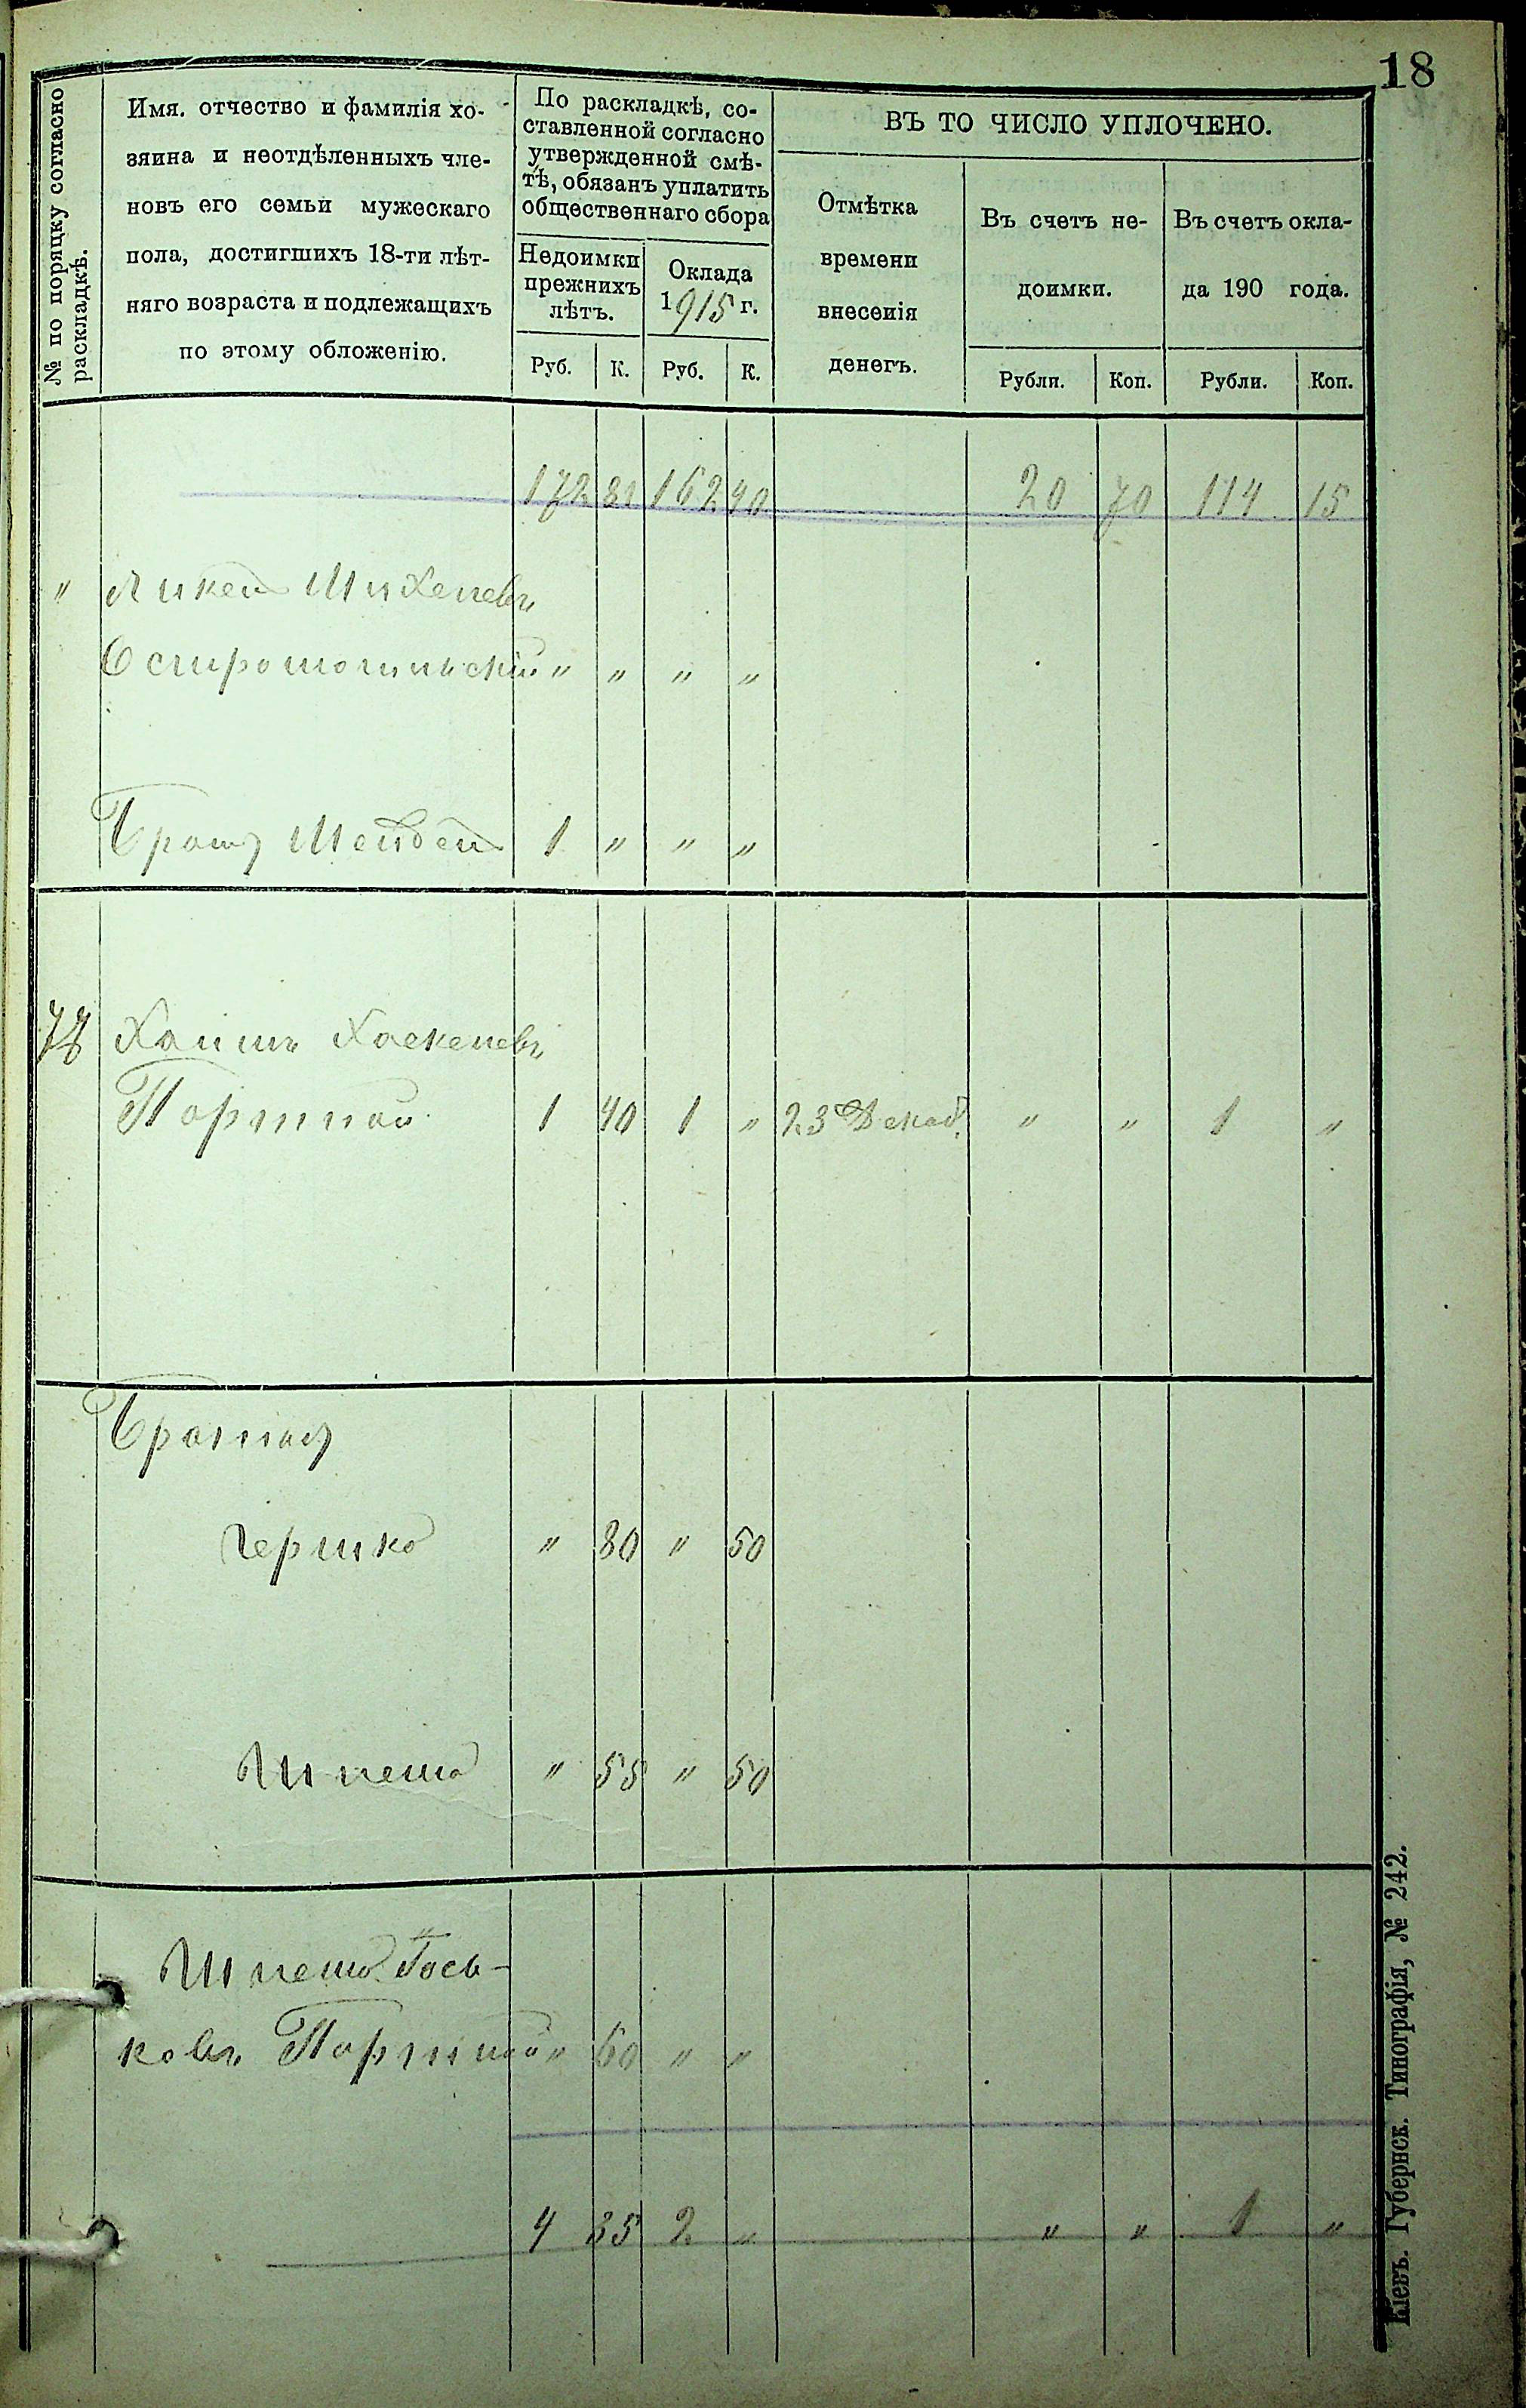 18
№ по порядку согласно раскладкѣ.
Имя, отчество и фамилія хо-
зяина и неотдѣленныхъ чле-
новъ его семьи мужескаго
пола, достигшихъ 18-ти лѣт-
няго возраста и подлежащихъ
по этому обложенію.
По раскладкѣ, со-
ставленной согласно
утвержденной смѣ-
тѣ, обязанъ уплатить
общественнаго сбора
Недоимки
прежнихъ
лѣтъ.
Руб. К.
Оклада
1915 г.
Руб. К.
ВЪ ТО ЧИСЛО УПЛОЧЕНО.
Отмѣтка
времени
внесенія
денегъ.
Въ счетъ не-
доимки.
Рубли. Коп.
Въ счетъ окла-
да 190 года.
Рубли. Коп.
172 81 162 40 20 70 114 15
"
" " " "
Братъ 1 " " "
Хаимъ Хаскелевъ
Портной 1 40 1 " 23 Декаб. " " 1 "
Братья
Гершко " 80 " 50
Шлема " 55 " 50
Шлема Гось-
ковъ Портной " 60 " "
4 35 2 " " " 1 "
Кіевъ. Губернск. Типографія, № 242.